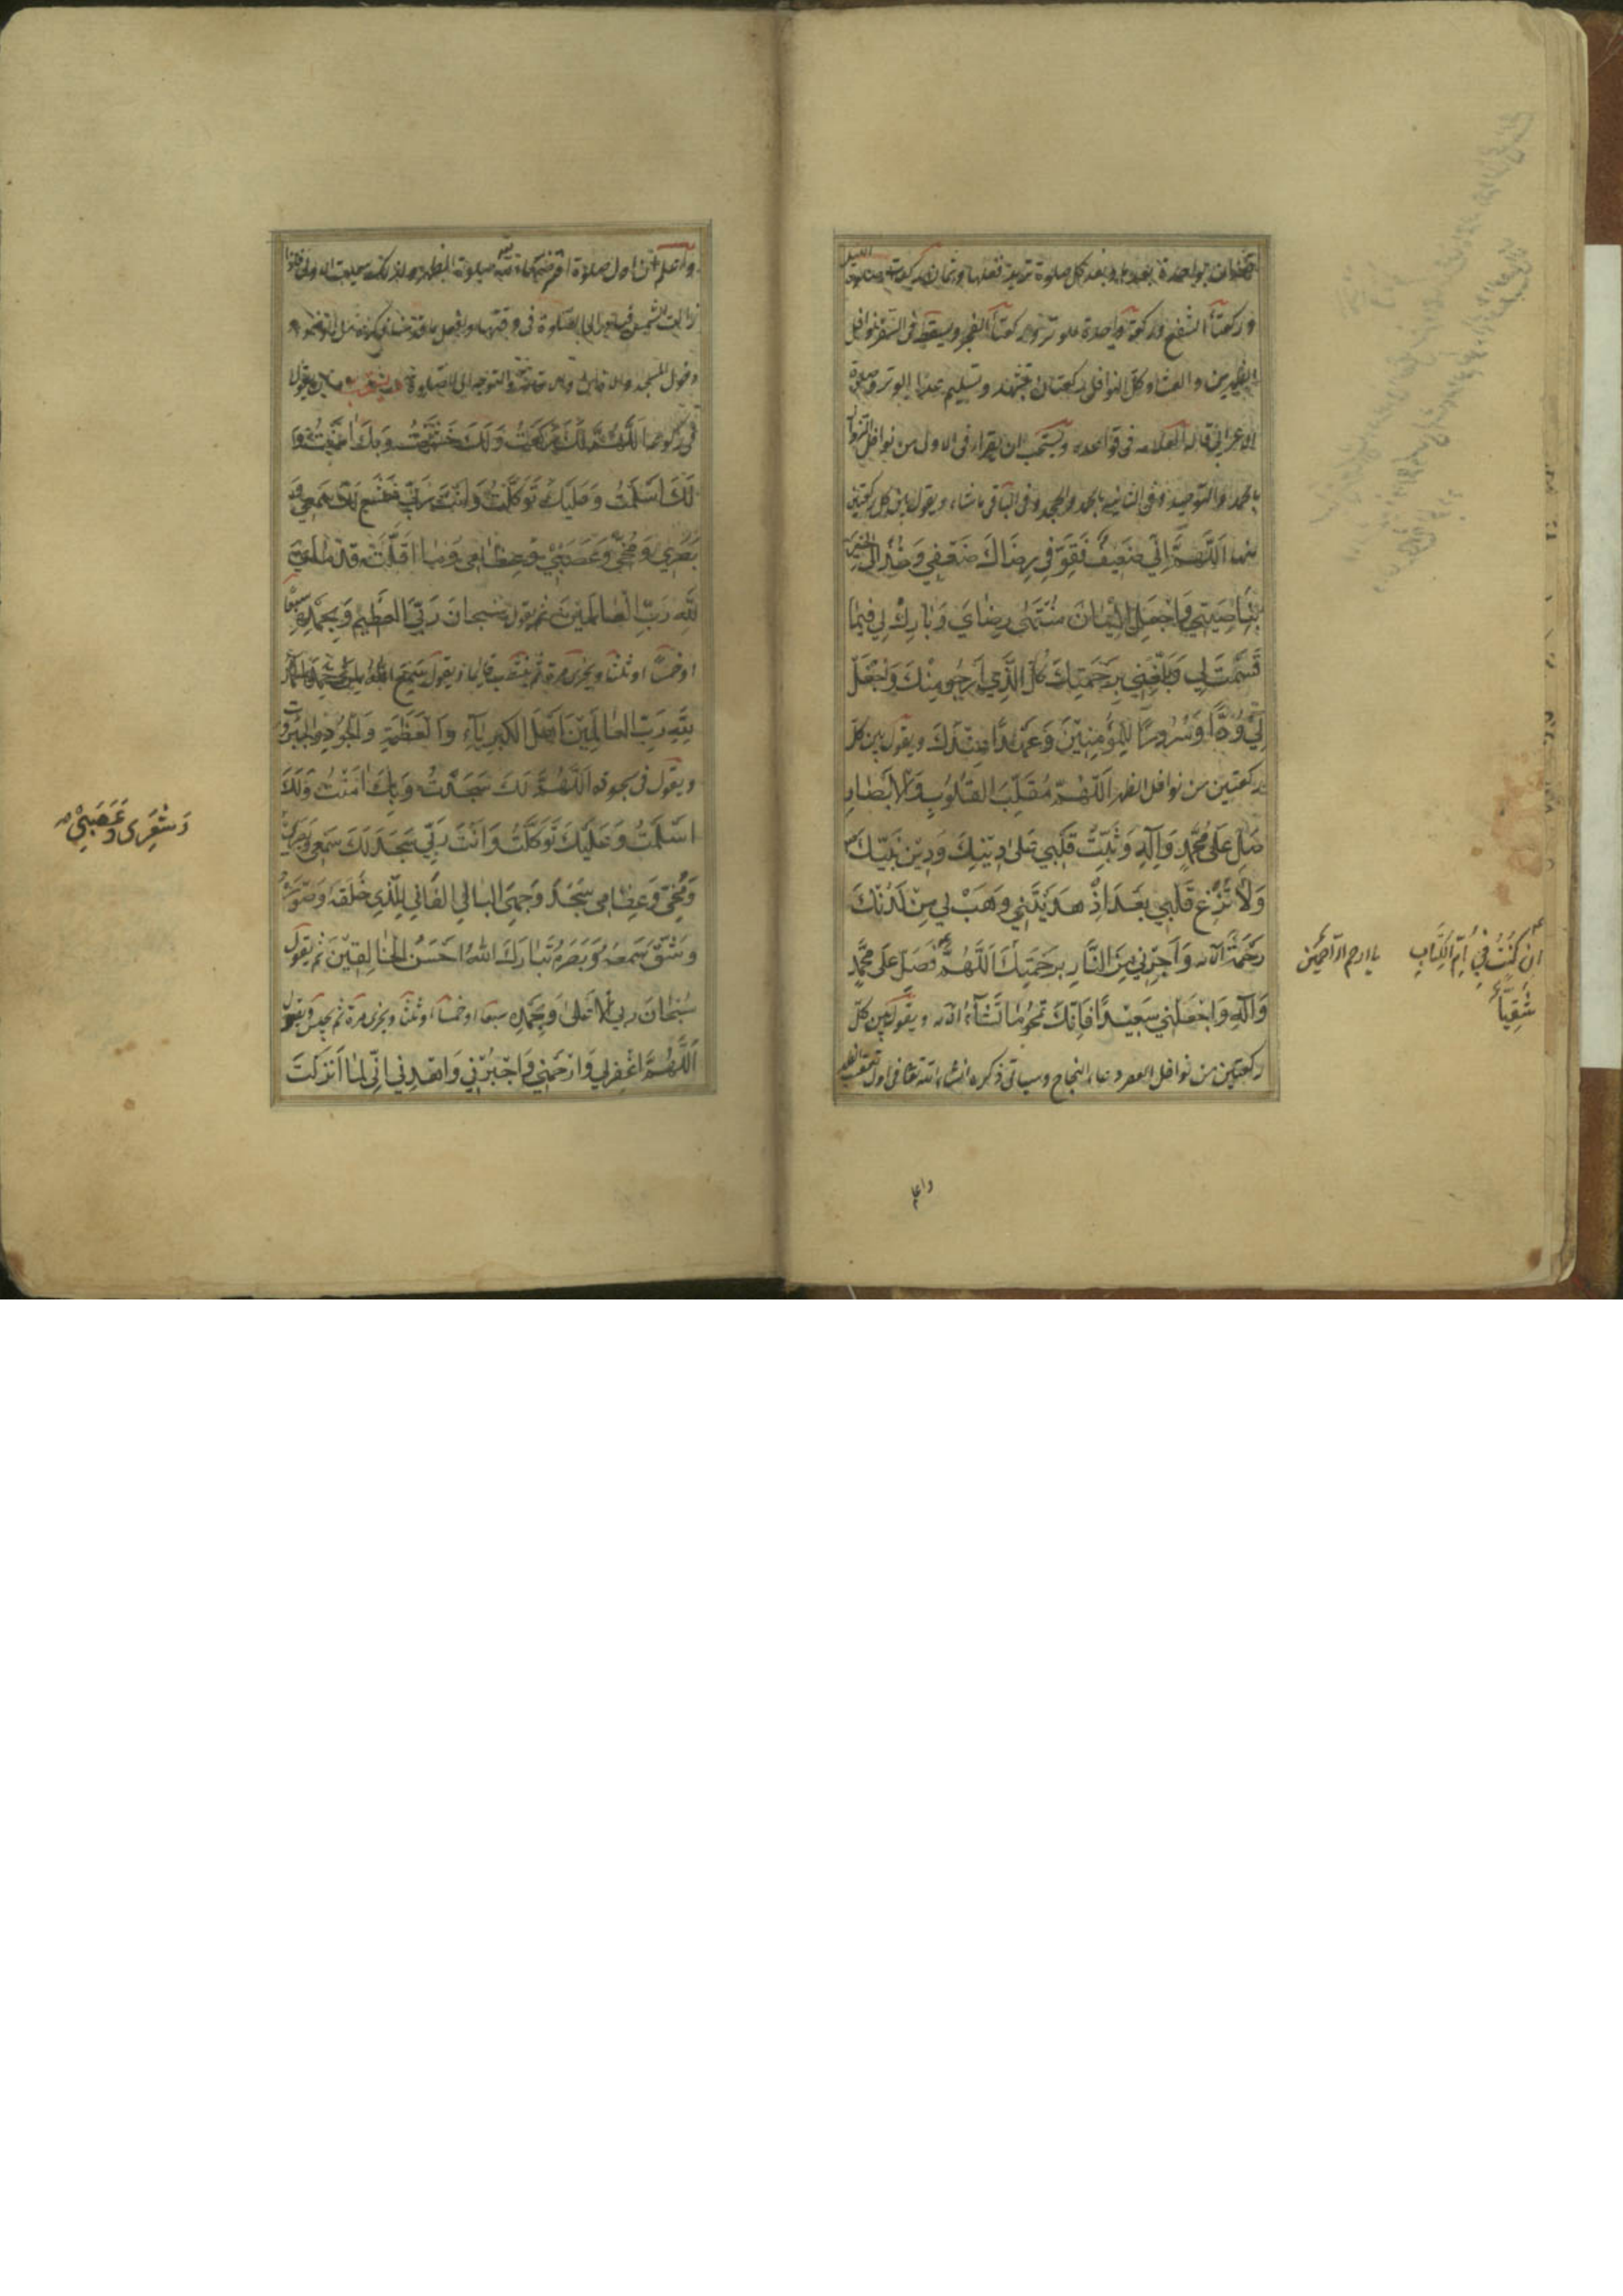 بواحدة بعد كل صلوة تريد فعلها وثمان ركعات صلوة الليل
وركعتا الشفع وركعة واحدة للوتر وركعتا الفجر ويسقط في السفر نوافل
الظهرين والعشاء وكل النوافل ركعتان بتشهد وتسليم عدا الوتر وصلوة
الاعرابي قاله العلامه في قواعده ويستحب ان يقراء في الاول من نوافل الزوال
بالحمد والتوحيد وفي الثانيه بالحمد والجحد وفي الباقي ما شاء ويقول بين كل ركعتين
منها اَللّهُمَّ اِنّي ضَعيفٌ فَقَوِّ في رِضاكَ ضَعْفي وَخُذْ اِلَى الْخَيْرِ
بِناصِيَتي وَاجْعَلِ الْاِيمانَ مُنْتَهى رِضايَ وَبارِكْ لي فيما
قَسَمْتَ لي وَبَلِّغْني بِرَحْمَتِكَ كُلَّ الَّذي اَرْجُو مِنْكَ وَاجْعَلْ
لي وُدّاً وَسُرُوراً لِلْمُؤْمِنينَ وَعَهْداً عِنْدَكَ ويقول بين كل
ركعتين من نوافل الظهر اَللّهُمَّ مُقَلِّبَ الْقُلُوبِ وَالْاَبْصارِ
صَلِّ عَلى مُحَمَّدٍ وَآلِهِ وَثَبِّتْ قَلْبي عَلى دينِكَ وَدينِ نَبِيِّكَ
وَلا تُزِغْ قَلْبي بَعْدَ اِذْ هَدَيْتَني وَهَبْ لي مِنْ لَدُنْكَ
رَحْمَةً وَاَجِرْني مِنَ النّارِ بِرَحْمَتِكَ اَللّهُمَّ صَلِّ عَلى مُحَمَّدٍ
وَآلِهِ وَاجْعَلْني سَعيداً فَاِنَّكَ تَمْحُو ما تَشاءُ ويقول بين كل
ركعتين من نوافل العصر دعاء النجاح وسياتي ذكره انشاء الله تعالى في اول تعقيب الظهر
اِنْ كُنْتُ في اُمِّ الْكِتابِ
شَقِيّاً
يا ارحم الراحمين
واعلم
واعلم ان اول صلوة افترضها الله صلوة الظهر ولذلك سميت الاولى فاذا
زالت الشمس الى الصلوة في وقتها وافعل
دخول المسجد والتوجه الى الصلوة يقول
في ركوعها اَللّهُمَّ لَكَ رَكَعْتُ وَلَكَ خَشَعْتُ وَبِكَ آمَنْتُ وَ
لَكَ اَسْلَمْتُ وَعَلَيْكَ تَوَكَّلْتُ وَاَنْتَ رَبّي خَشَعَ لَكَ سَمْعي وَ
بَصَري وَمُخّي وَعَصَبي وَعِظامي وَما اَقَلَّتْهُ قَدَمايَ
لِلّهِ رَبِّ الْعالَمينَ ثم يقول سُبْحانَ رَبِّيَ الْعَظيمِ وَبِحَمْدِهِ سبعا
او خمسا او ثلثا ويجزى مرة ثم ينتصب قايما ويقول سَمِعَ اللهُ لِمَنْ حَمِدَهُ اَلْحَمْدُ
لِلّهِ رَبِّ الْعالَمينَ اَهْلِ الْكِبْرِياءِ وَالْعَظَمَةِ وَالْجُودِ وَالْجَبَرُوتِ
ويقول في سجوده اَللّهُمَّ لَكَ سَجَدْتُ وَبِكَ آمَنْتُ وَلَكَ
اَسْلَمْتُ وَعَلَيْكَ تَوَكَّلْتُ وَاَنْتَ رَبّي سَجَدَ لَكَ سَمْعي وَبَصَري
وَمُخّي وَعِظامي سَجَدَ وَجْهِيَ الْبالِي الْفاني لِلَّذي خَلَقَهُ وَصَوَّرَهُ
وَشَقَّ سَمْعَهُ وَبَصَرَهُ تَبارَكَ اللهُ اَحْسَنُ الْخالِقينَ ثم يقول
سُبْحانَ رَبِّيَ الْاَعْلى وَبِحَمْدِهِ سبعا او خمسا او ثلثا ويجزى مرة ثم يجلس ويقول
اَللّهُمَّ اغْفِرْ لي وَارْحَمْني وَاجْبُرْني وَاهْدِني اِنّي لِما اَنْزَلْتَ
وَشَعْري وَعَصَبي